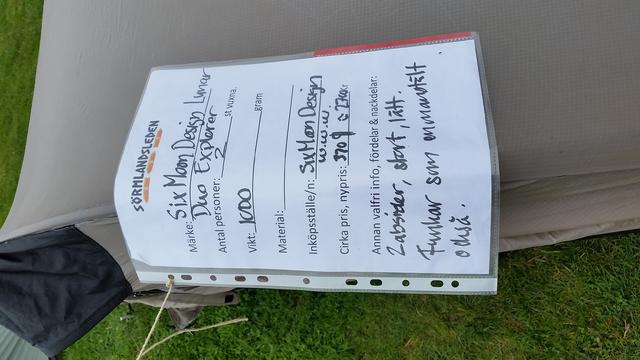 SÖRMLANDSLEDEN
Märke: Six Moon Design Lunar
Duo Explorer
Antal personer: 2 st vuxna,
Vikt: 1000 gram
Material:
Inköpsställe/n: SixMoonDesign
w.w.w.
Cirka pris, nypris: kr
Annan valfri info, fördelar & nackdelar:
2 absider, stort, lätt.
Funkar som enmanstält
också.